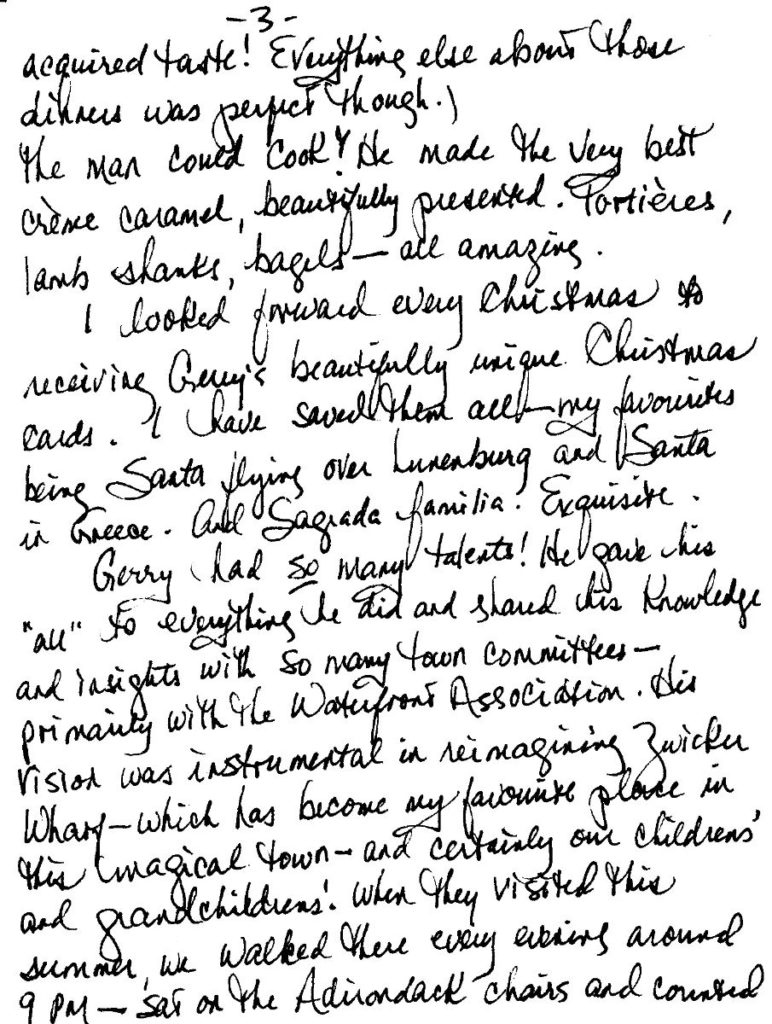 -3-
acquired taste! Everything else about those
dinners was perfect though.)
The man could cook! He made the very best
crème caramel, beautifully presented. Tortières,
lamb shanks, bagels — all amazing.
I looked forward every Christmas to
receiving Gerry's beautifully unique Christmas
cards. I have saved them all — my favourites
being Santa flying over Lunenburg and Santa
in Greece. And Sagrada familia. Exquisite.
Gerry had so many talents! He gave his
"all" to everything he did and shared his knowledge
and insights with so many town committees —
primarily with the Waterfront Association. His
vision was instrumental in reimagining Zwicker
Wharf — which has become my favourite place in
this magical town — and certainly our childrens'
and grandchildrens'. When they visited this
summer, we walked there every evening around
9 PM — sat on the Adirondack chairs and counted